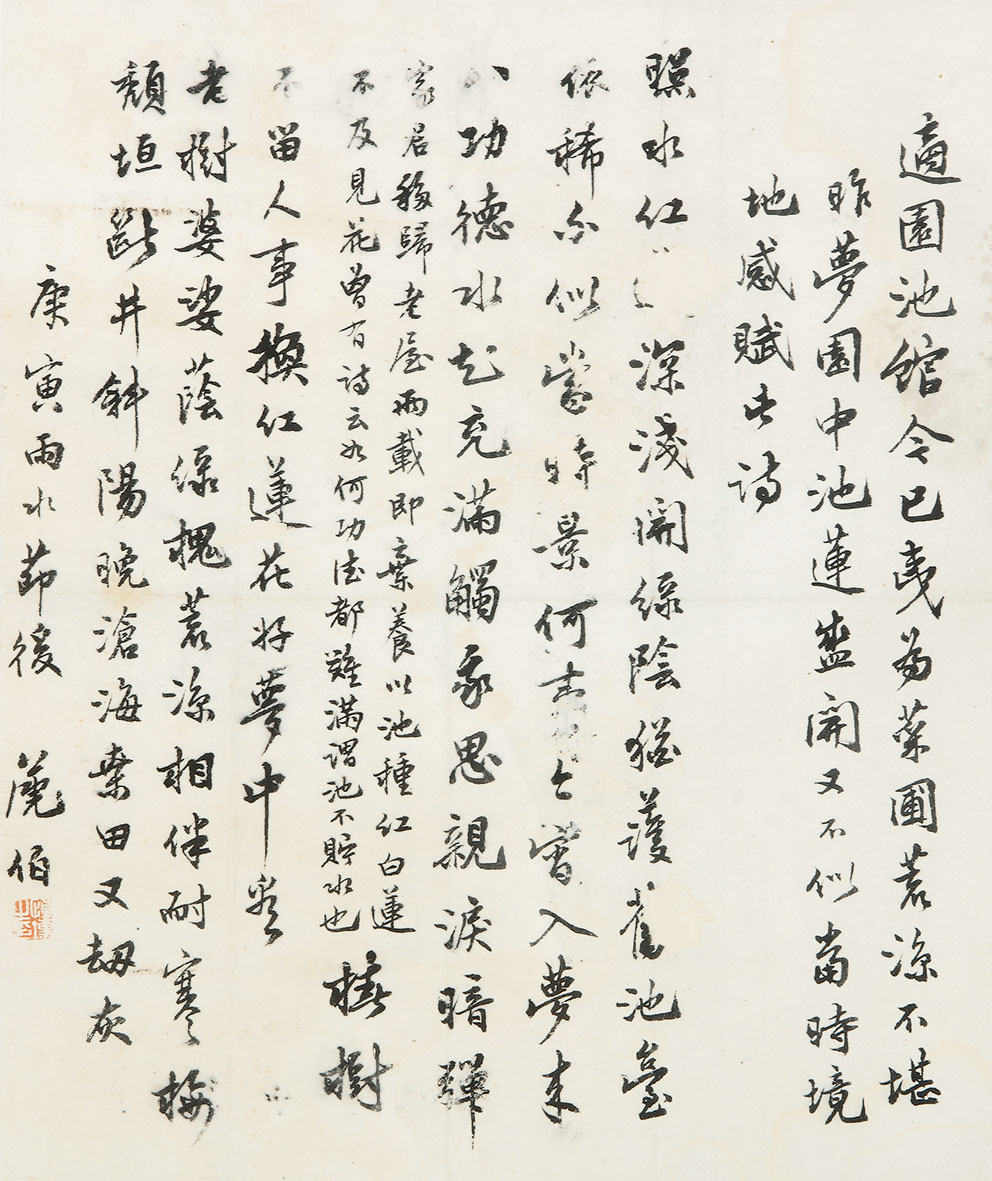 適園池館今已夷為菜圃荒涼不堪
昨夢園中池蓮盛開又不似當時境
地感賦此詩
照水紅 深淺開綠陰猶護舊池臺
依稀不似當時景何 入夢來
八功德水乞充滿觸我思親淚暗彈
家居移歸老屋兩載即棄養以池種紅白蓮
不及見花曾有詩云如何功德都難滿謂池不貯水也
樁樹
不留人事換紅蓮花好夢中看
老樹婆娑蔭綠槐荒涼相伴耐寒梅
頹垣斷井斜陽晚滄海桑田又劫灰
庚寅雨水節後 蒓伯